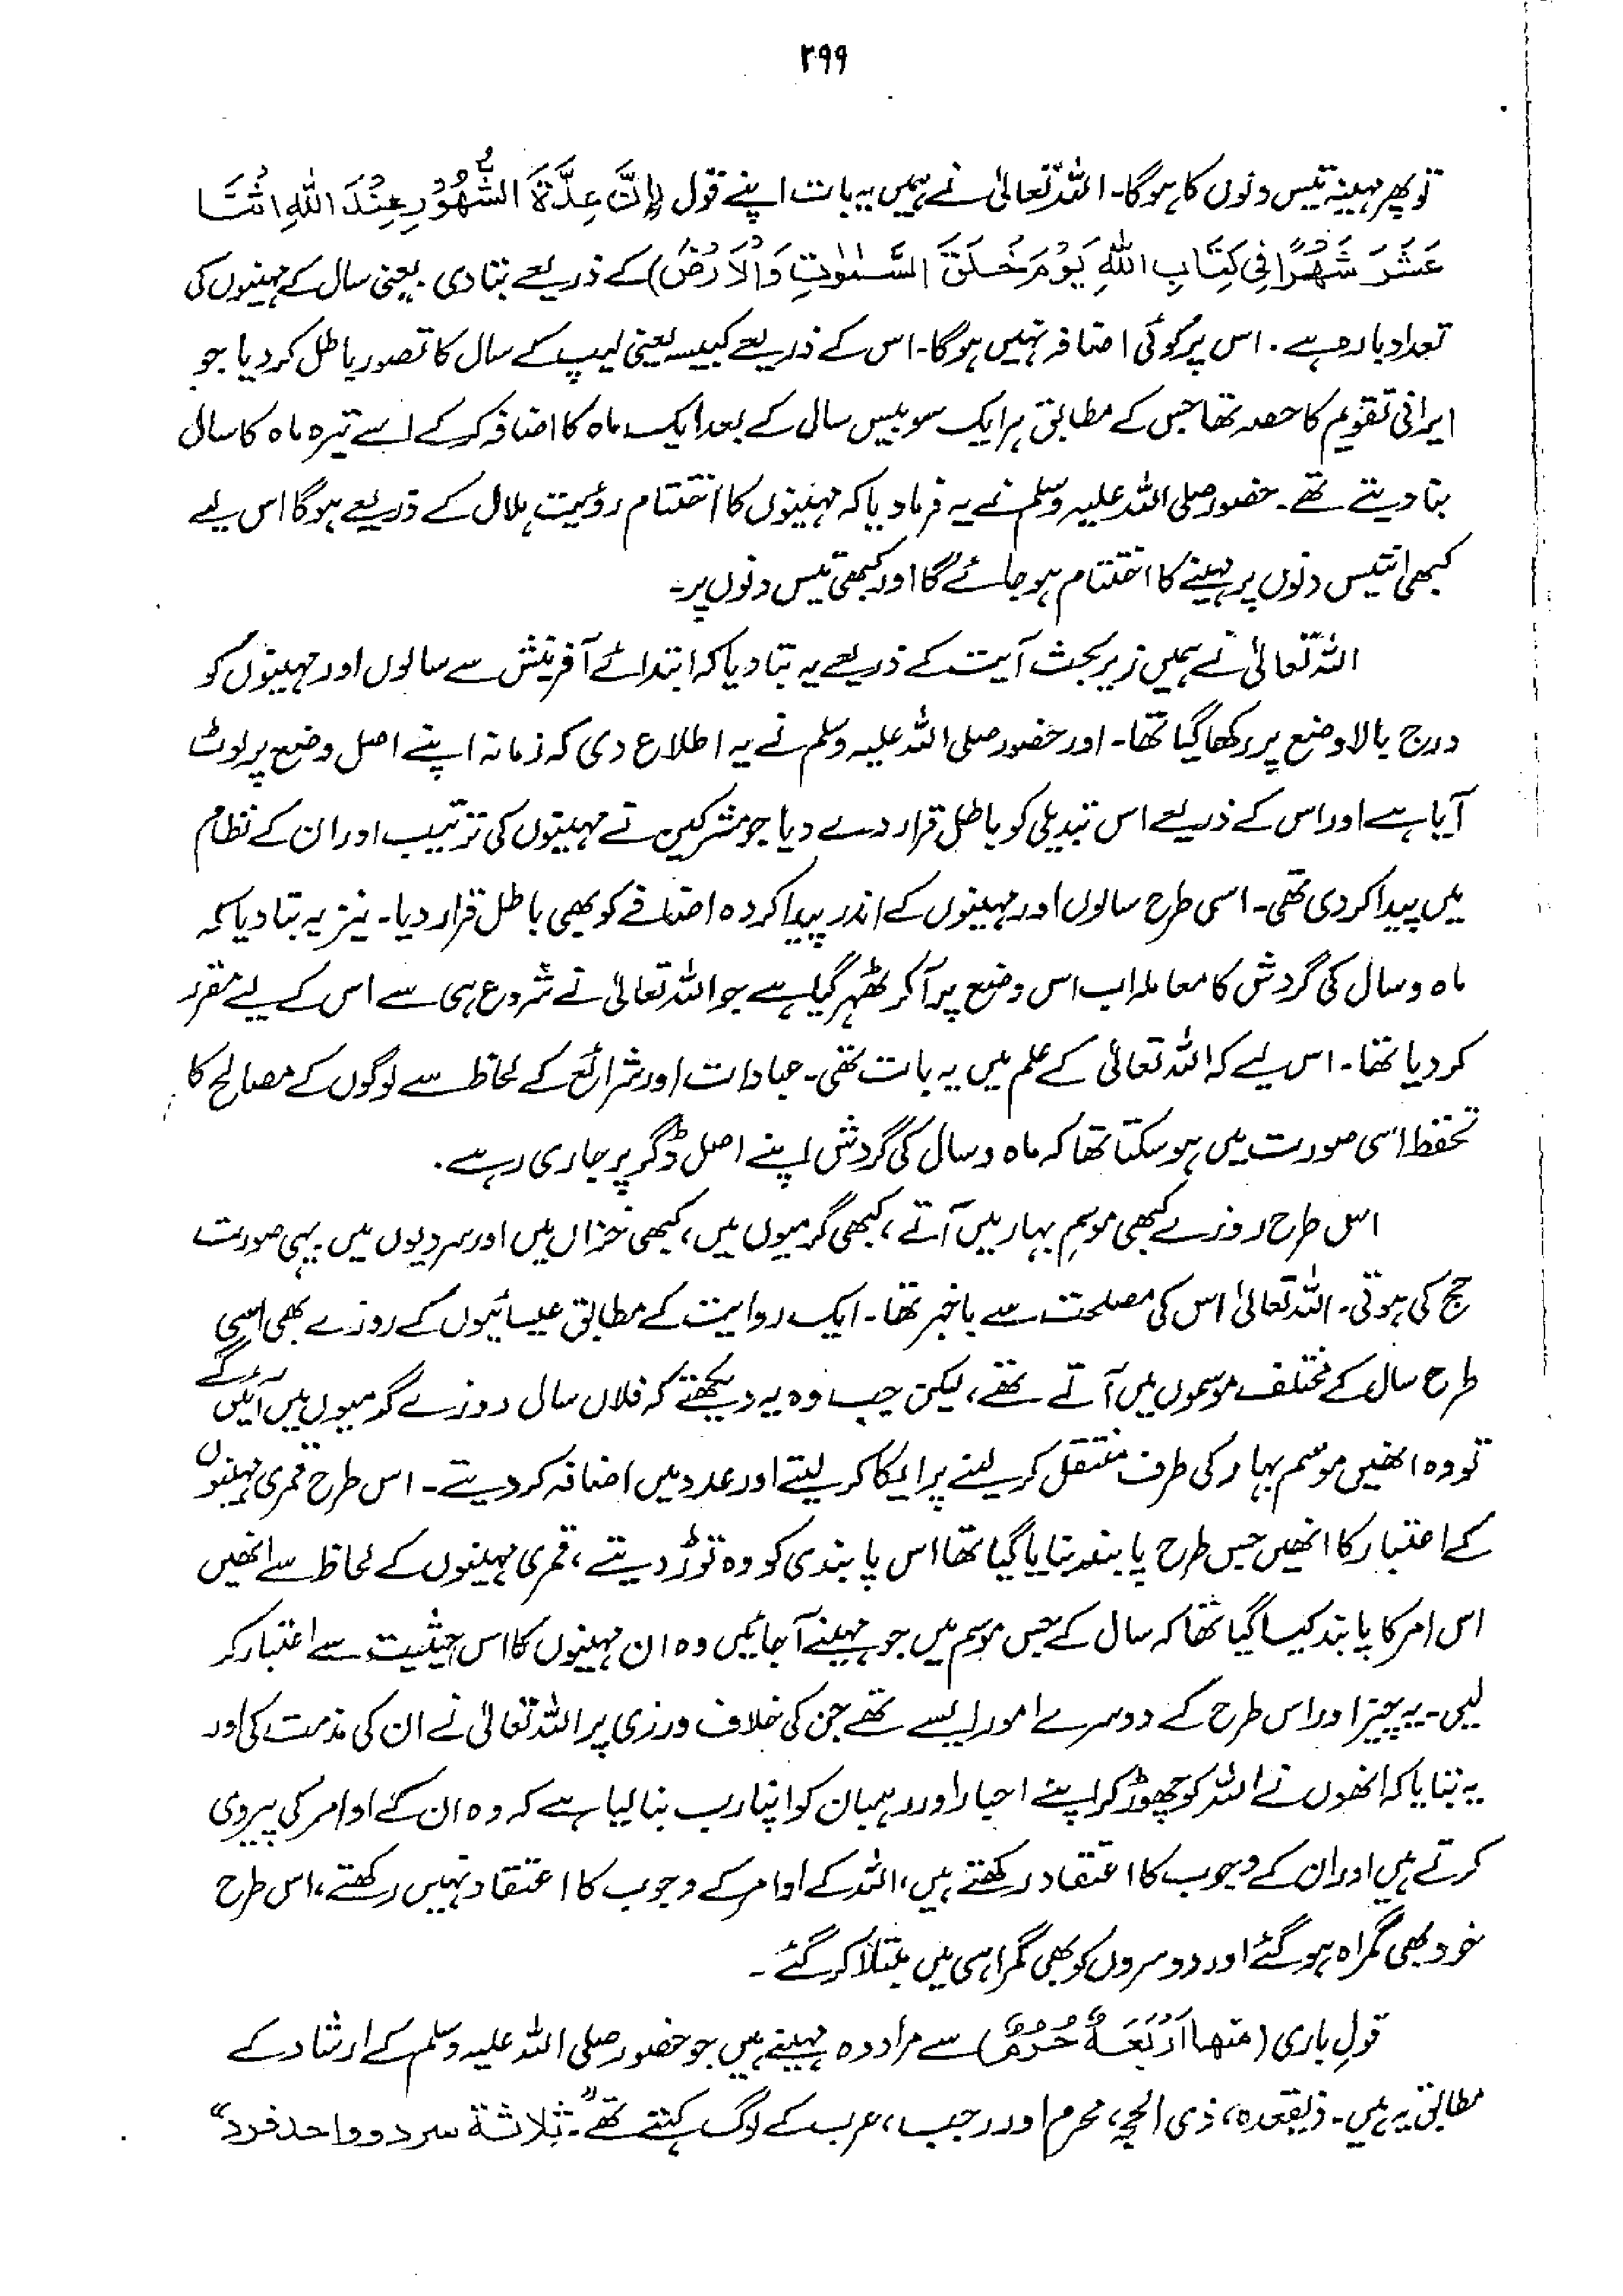 ۲۹۹
تو پھر مہینہ تیس دنوں کا ہوگا۔ اللہ تعالیٰ نے ہمیں یہ بات اپنے قول (اِنَّ عِدَّۃَ الشُّھُوْرِ عِنْدَ اللہِ اثْنَا
عَشَرَ شَھْرًا فِیْ کِتَابِ اللہِ یَوْمَ خَلَقَ السَّمٰوٰتِ وَالْاَرْضَ) کے ذریعے بتا دی۔ یعنی سال کے مہینوں کی
تعداد بارہ ہے۔ اس پر کوئی اضافہ نہیں ہوگا۔ اس کے ذریعے کبیسہ یعنی لیپ کے سال کا تصور باطل کر دیا جو
ایرانی تقویم کا حصہ تھا جس کے مطابق ہر ایک سو بیس سال کے بعد ایک ماہ کا اضافہ کرکے اسے تیرہ ماہ کا سال
بنا دیتے تھے۔ حضور صلی اللہ علیہ وسلم نے یہ فرما دیا کہ مہینوں کا اختتام رؤیت ہلال کے ذریعے ہوگا اس لیے
کبھی انتیس دنوں پر مہینے کا اختتام ہو جائے گا اور کبھی تیس دنوں پر۔
اللہ تعالیٰ نے ہمیں زیر بحث آیت کے ذریعے یہ بتا دیا کہ ابتدائے آفرینش سے سالوں اور مہینوں کو
درج بالا وضع پر رکھا گیا تھا۔ اور حضور صلی اللہ علیہ وسلم نے یہ اطلاع دی کہ زمانہ اپنے اصل وضع پر لوٹ
آیا ہے اور اس کے ذریعے اس تبدیلی کو باطل قرار دے دیا جو مشرکین نے مہینوں کی ترتیب اور ان کے نظام
میں پیدا کر دی تھی۔ اسی طرح سالوں اور مہینوں کے اندر پیدا کردہ اضافے کو بھی باطل قرار دیا۔ نیز یہ بتا دیا کہ
ماہ و سال کی گردش کا معاملہ اب اس وضع پر آ کر ٹھہر گیا ہے جو اللہ تعالیٰ نے شروع ہی سے اس کے لیے مقرر
کر دیا تھا۔ اس لیے کہ اللہ تعالیٰ کے علم میں یہ بات تھی۔ عبادات اور شرائع کے لحاظ سے لوگوں کے مصالح کا
تحفظ اسی صورت میں ہو سکتا تھا کہ ماہ و سال کی گردش اپنے اصل ڈگر پر جاری رہے۔
اس طرح روزے کبھی موسم بہار میں آتے، کبھی گرمیوں میں، کبھی خزاں میں اور سردیوں میں۔ یہی صورت
حج کی ہوتی۔ اللہ تعالیٰ اس کی مصلحت سے باخبر تھا۔ ایک روایت کے مطابق عیسائیوں کے روزے بھی اسی
طرح سال کے مختلف موسموں میں آتے تھے، لیکن جب وہ یہ دیکھتے کہ فلاں سال روزے گرمیوں میں آئیں گے
تو وہ انھیں موسم بہار کی طرف منتقل کر لینے پر ایکا کر لیتے اور عدد میں اضافہ کر دیتے۔ اس طرح قمری مہینوں
کے اعتبار کا انھیں جس طرح پابند بنایا گیا تھا اس پابندی کو وہ توڑ دیتے، قمری مہینوں کے لحاظ سے انھیں
اس امر کا پابند کیا گیا تھا کہ سال کے جس موسم میں جو مہینے آ جائیں وہ ان مہینوں کا اس حیثیت سے اعتبار کر
لیں۔ یہ چیز اور اس طرح کے دوسرے امور ایسے تھے جن کی خلاف ورزی پر اللہ تعالیٰ نے ان کی مذمت کی اور
یہ بتایا کہ انھوں نے اللہ کو چھوڑ کر اپنے احبار اور رہبان کو اپنا رب بنا لیا ہے کہ وہ ان کے اوامر کی پیروی
کرتے ہیں اور ان کے وجوب کا اعتقاد رکھتے ہیں، اللہ کے اوامر کے وجوب کا اعتقاد نہیں رکھتے، اس طرح
خود بھی گمراہ ہو گئے اور دوسروں کو بھی گمراہی میں مبتلا کر گئے۔
قولِ باری (منھا اَرْبَعَۃٌ حُرُمٌ) سے مراد وہ مہینے ہیں جو حضور صلی اللہ علیہ وسلم کے ارشاد کے
مطابق یہ ہیں۔ ذیقعدہ، ذی الحجہ، محرم اور رجب، عرب کے لوگ کہتے تھے "۔ ثلاثة سرد و واحد فرد"